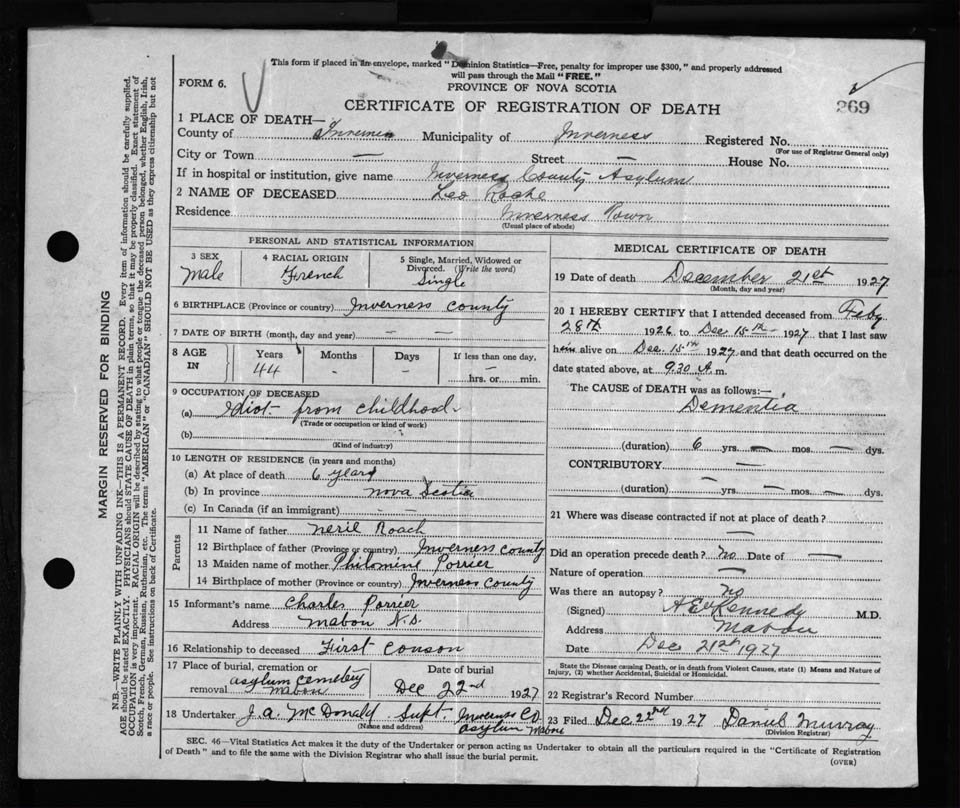 This form if placed in an envelope, marked "Dominion Statistics—Free, penalty for improper use $300," and properly addressed
will pass through the Mail "FREE."
FORM 6.
PROVINCE OF NOVA SCOTIA
CERTIFICATE OF REGISTRATION OF DEATH
269
1 PLACE OF DEATH—
County of Inverness Municipality of Inverness Registered No.
(For use of Registrar General only)
City or Town — Street — House No.
If in hospital or institution, give name Inverness County Asylum
2 NAME OF DECEASED Leo Roche
Residence Inverness Town
(Usual place of abode)
PERSONAL AND STATISTICAL INFORMATION
3 SEX Male
4 RACIAL ORIGIN French
5 Single, Married, Widowed or Divorced. (Write the word) Single
6 BIRTHPLACE (Province or country) Inverness County
7 DATE OF BIRTH (month, day and year) — —
8 AGE IN Years Months Days If less than one day,
44 - - — hrs. or min.
9 OCCUPATION OF DECEASED
(a) Idiot from childhood
(Trade or occupation or kind of work)
(b)
(Kind of industry)
10 LENGTH OF RESIDENCE (in years and months)
(a) At place of death 6 years
(b) In province Nova Scotia
(c) In Canada (if an immigrant) - -
Parents
11 Name of father Neril Roach
12 Birthplace of father (Province or country) Inverness County
13 Maiden name of mother Philomine Porrier
14 Birthplace of mother (Province or country) Inverness County
15 Informant's name Charles Porrier
Address Mabou N.S.
16 Relationship to deceased First Couson
17 Place of burial, cremation or removal Asylum Cemetery Mabou
Date of burial Dec 22nd 1927
18 Undertaker J.A. McDonald Supt. Inverness Co. Asylum Mabou
(Name and address)
MEDICAL CERTIFICATE OF DEATH
19 Date of death December 21st 1927
(Month, day and year)
20 I HEREBY CERTIFY that I attended deceased from Feby
28th 1926 to Dec 15th 1927, that I last saw
him alive on Dec. 15th 1927 and that death occurred on the
date stated above, at 9.30 A.m.
The CAUSE of DEATH was as follows:—
Dementia
(duration) 6 yrs. — mos. — dys.
CONTRIBUTORY —
(duration) — yrs. — mos. — dys.
21 Where was disease contracted if not at place of death?
—
Did an operation precede death? No Date of —
Nature of operation —
Was there an autopsy? No
(Signed) Kennedy M.D.
Address Mabou
Date Dec 21st 1927
State the Disease causing Death, or in death from Violent Causes, state (1) Means and Nature of
Injury, (2) whether Accidental, Suicidal or Homicidal.
22 Registrar's Record Number
23 Filed Dec 22nd 1927 Daniel Murray
(Division Registrar)
SEC. 46—Vital Statistics Act makes it the duty of the Undertaker or person acting as Undertaker to obtain all the particulars required in the "Certificate of Registration
of Death" and to file the same with the Division Registrar who shall issue the burial permit.
(OVER)
MARGIN RESERVED FOR BINDING
N.B.—WRITE PLAINLY WITH UNFADING INK—THIS IS A PERMANENT RECORD. Every item of information should be carefully supplied.
AGE should be stated EXACTLY. PHYSICIANS should STATE CAUSE OF DEATH in plain terms, so that it may be properly classified. Exact statement of
OCCUPATION is very important. RACIAL ORIGIN will be described by stating to what people or tongue the deceased person belonged, whether English, Irish,
Scotch, French, German, Russian, Ruthenian, etc. The terms "AMERICAN" or "CANADIAN" SHOULD NOT BE USED as they express citizenship but not
a race or people. See instructions on back of Certificate.